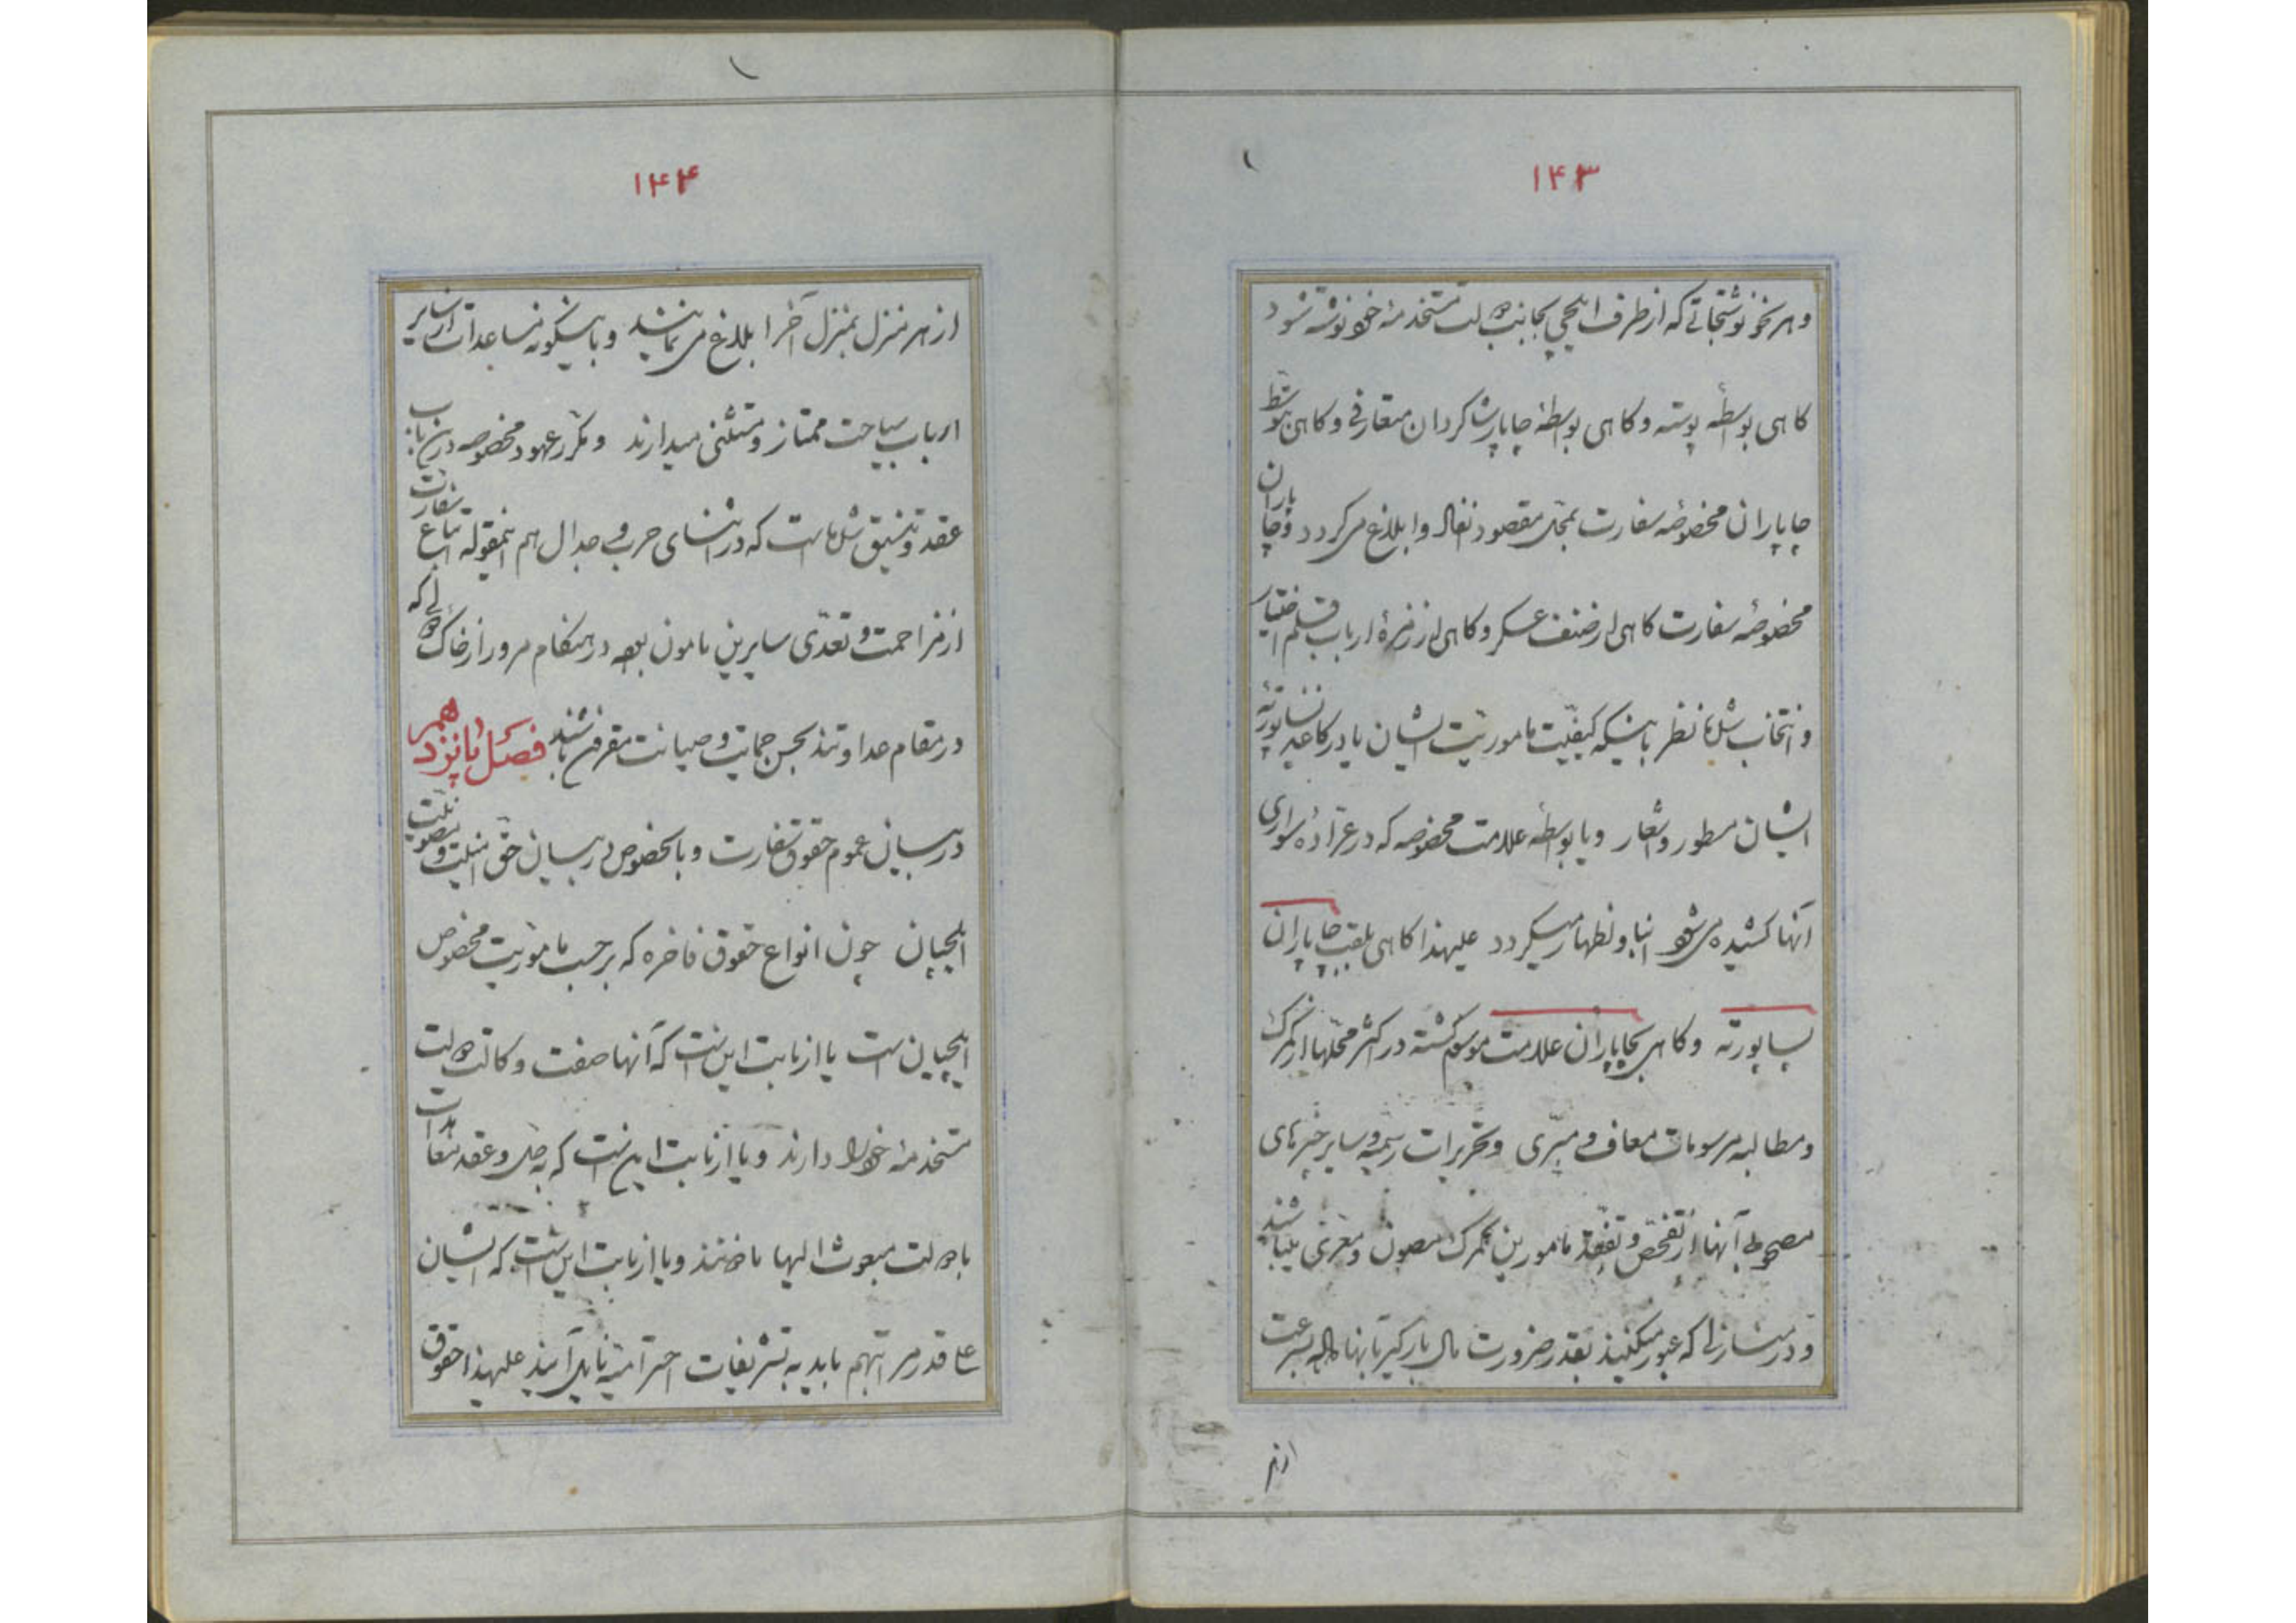 ۱۴۳
و هر نحو نوشتجاتی که از طرف ایلچی بجانب دولت متخذمنه خود نوشته شود
کاهی بوسطهٔ پوسته و کاهی بوسطهٔ چاپار شاکردان متعارفی و کاهی بتوسط
چاپاران مخصوصهٔ سفارت بمحل مقصود انفاد و ابلاغ می کردد و چاپاران
مخصوصهٔ سفارت کاهی از صنف عسکر و کاهی از زمرهٔ ارباب قلم اختیار
و انتخاب شده نظر باینکه کیفیّت ماموریّت ایشان یا در کاغذ پساپورتهٔ
ایشان مسطور و اشعار و یا بوسطهٔ علامت مخصوصه که در عرّادهٔ سواری
آنها کشیده می شود انبا و اظهار میکردد علیهذا کاهی بلقب چاپاران
پساپورته و کاهی بچاپاران علامت موسوم کشته در اکثر محلها از کمرک
و مطالبه مرسومات معاف و مبرّی و تحریرات رسمیه و سایر چیزهای
مصحوبی آنها از تفحّص و تفقّد مامورین کمرک مصون و معرّی میباشند
و در منازلی که عبور میکنند بقدر ضرورت مال بارکیر بآنها داده بسرعت
از هر
۱۴۴
از هر منزل بمنزل آخر ابلاغ می نمایند و باینکونه مساعدات از سایر
ارباب سیاحت ممتاز و مستثنی میدارند و مکرر عهود مخصوصه در این باب
عقد و تنمیق شده است که در اثنای حرب و جدال هم اینمقوله اتباع سفارت
از مزاحمت و تعدّی سایرین مامون بوده در هنکام مرور از خاک دولی که
در مقام عداوتند بحسن حمایت و صیانت مقرون باشند فصل پانزدهم
در بیان عموم حقوق سفارت و بالخصوص در بیان حق امنیّت و مصونیّت
ایلچیان چون انواع حقوق فاخره که بر حسب ماموریت مخصوص
ایلچیان است یا از بابت این است که آنها صفت وکالت دولت
متخذمنه خود را دارند و یا از بابت این است که به حل و عقد معاهدات
با دولت مبعوث الیها ماذونند و یا از بابت این است که ایشان
علی قدر مراتبهم باید به تشریفات احترامیّه نایل آیند علیهذا حقوق